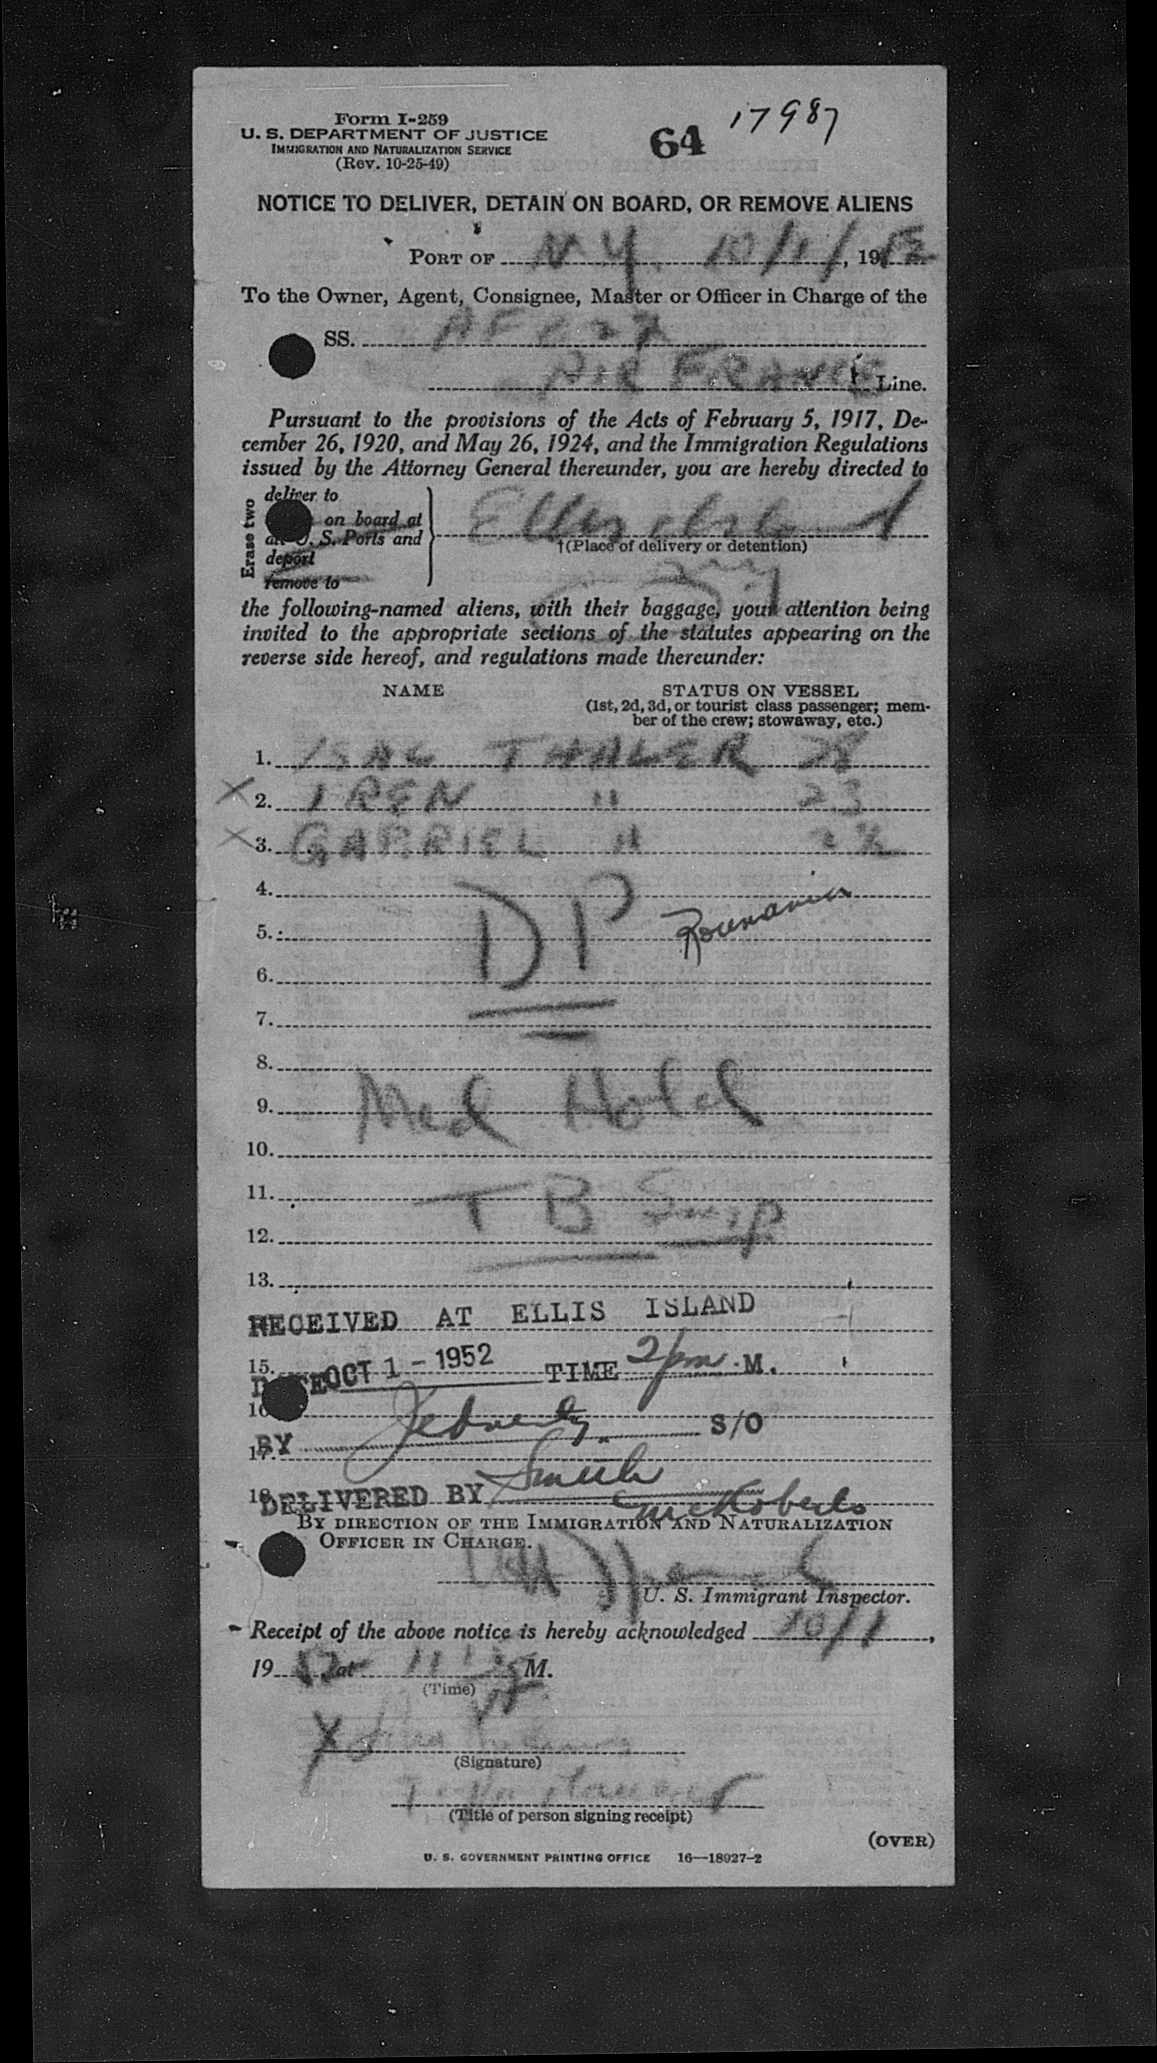 Form I-259
U. S. DEPARTMENT OF JUSTICE
IMMIGRATION AND NATURALIZATION SERVICE
(Rev. 10-25-49)
64 17987
NOTICE TO DELIVER, DETAIN ON BOARD, OR REMOVE ALIENS
PORT OF N.Y. 10/1/, 1952
To the Owner, Agent, Consignee, Master or Officer in Charge of the
SS. AF 027
AIR FRANCE Line.
Pursuant to the provisions of the Acts of February 5, 1917, De-
cember 26, 1920, and May 26, 1924, and the Immigration Regulations
issued by the Attorney General thereunder, you are hereby directed to
Erase two
deliver to
on board at
all U. S. Ports and
deport
remove to
Ellis Island
†(Place of delivery or detention)
the following-named aliens, with their baggage, your attention being
invited to the appropriate sections of the statutes appearing on the
reverse side hereof, and regulations made thereunder:
NAME STATUS ON VESSEL
(1st, 2d, 3d, or tourist class passenger; mem-
ber of the crew; stowaway, etc.)
1. ISAC THALER 28
X 2. IREN " 23
X 3. GABRIEL " 2½
4.
DP Roumania
5.
6.
7.
8.
9. Med Hold
10.
11.
12. TB Susp
13.
RECEIVED AT ELLIS ISLAND
15.
DATE OCT 1 - 1952 TIME 2 pm .M.
16
BY S/O
17.
18 DELIVERED BY Smith
McRoberts
BY DIRECTION OF THE IMMIGRATION AND NATURALIZATION
OFFICER IN CHARGE.
U. S. Immigrant Inspector.
Receipt of the above notice is hereby acknowledged 10/1,
19 52 at 11 15 M.
(Time)
X
(Signature)
(Title of person signing receipt)
(OVER)
U. S. GOVERNMENT PRINTING OFFICE 16—18927-2